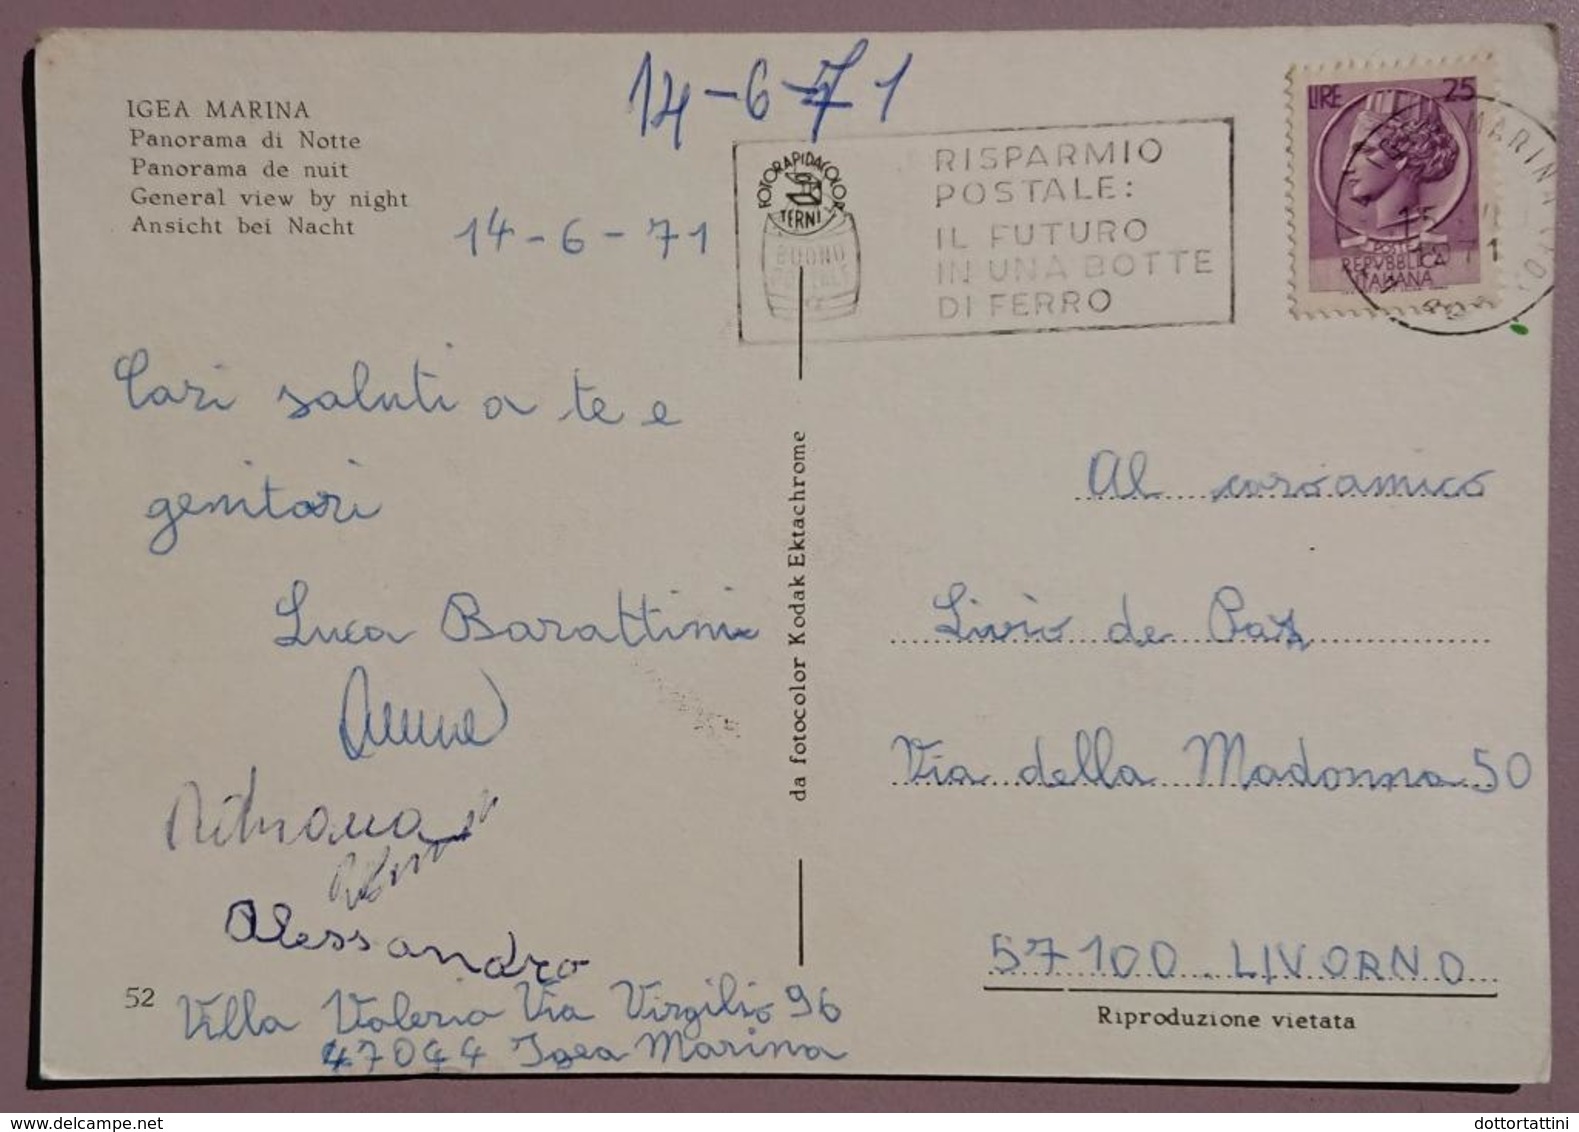 IGEA MARINA
Panorama di Notte
Panorama de nuit
General view by night
Ansicht bei Nacht
14-6-71
14-6-71
FOTORAPIDACOLOR
TERNI
BUONO
RISPARMIO
POSTALE:
IL FUTURO
IN UNA BOTTE
DI FERRO
LIRE 25
POSTE
REPVBBLICA
ITALIANA
MARINA
15
1971
Cari saluti a te e
genitori
Luca Barattini
Alessandro
52
Villa Valeria Via Virgilio 96
47044 Igea Marina
da fotocolor Kodak Ektachrome
Al caro amico
Livio de Paz
Via della Madonna 50
57100 LIVORNO
Riproduzione vietata
dottortattini